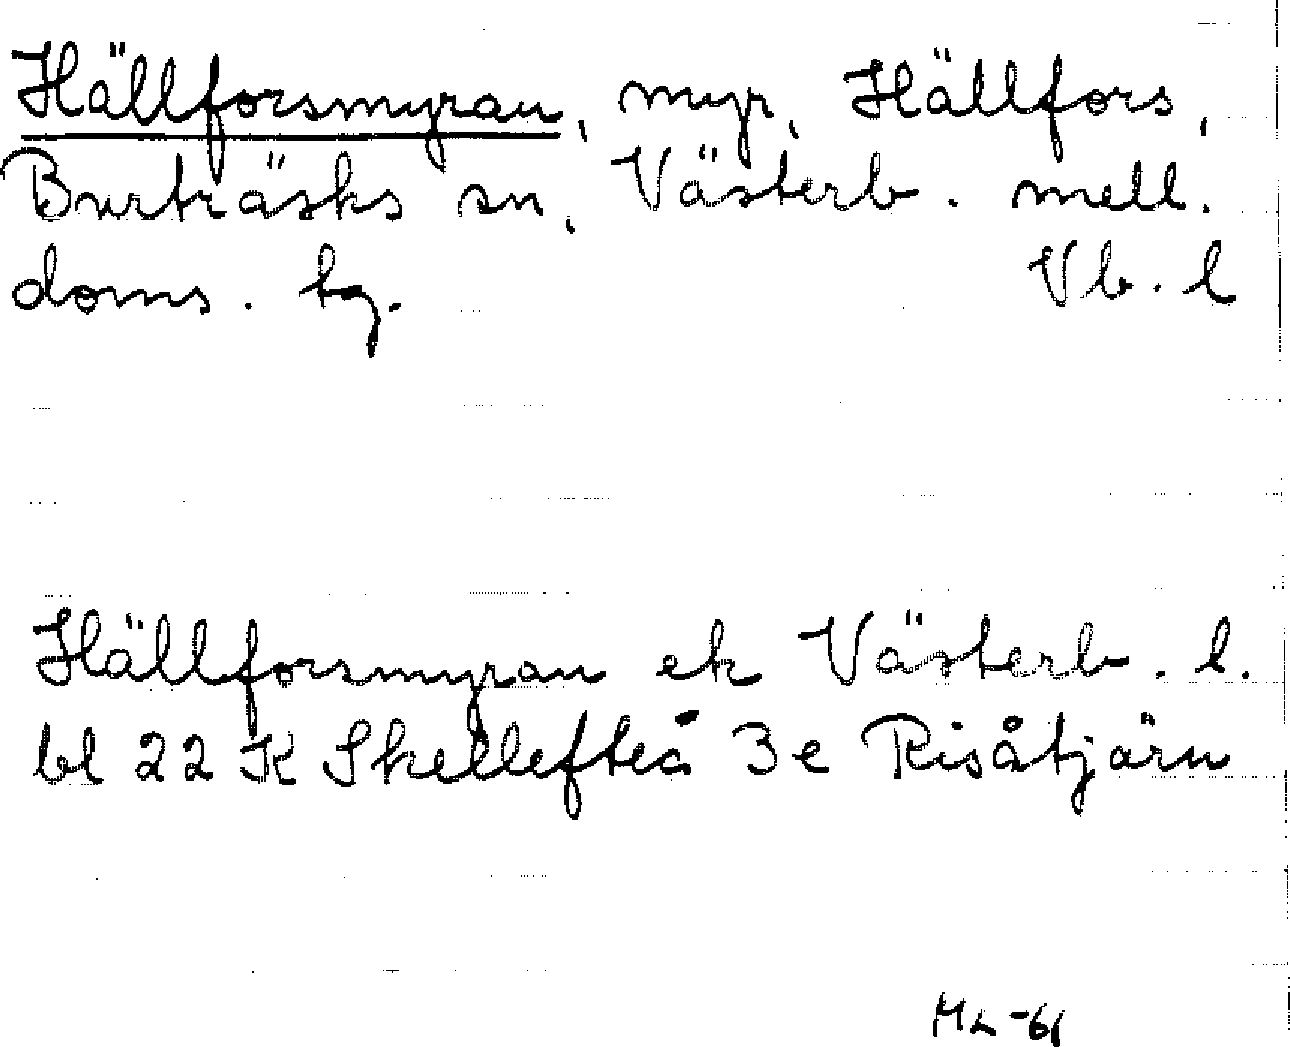 Hällforsmyran, myr, Hällfors,
Burträsks sn, Västerb. mell.
doms. tg.
Vb. l
Hällforsmyran ek Västerb. l.
bl 22 K Skellefteå 3e Risåtjärn
ML -61